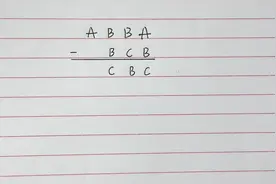 A B B A
- B C B
C B C